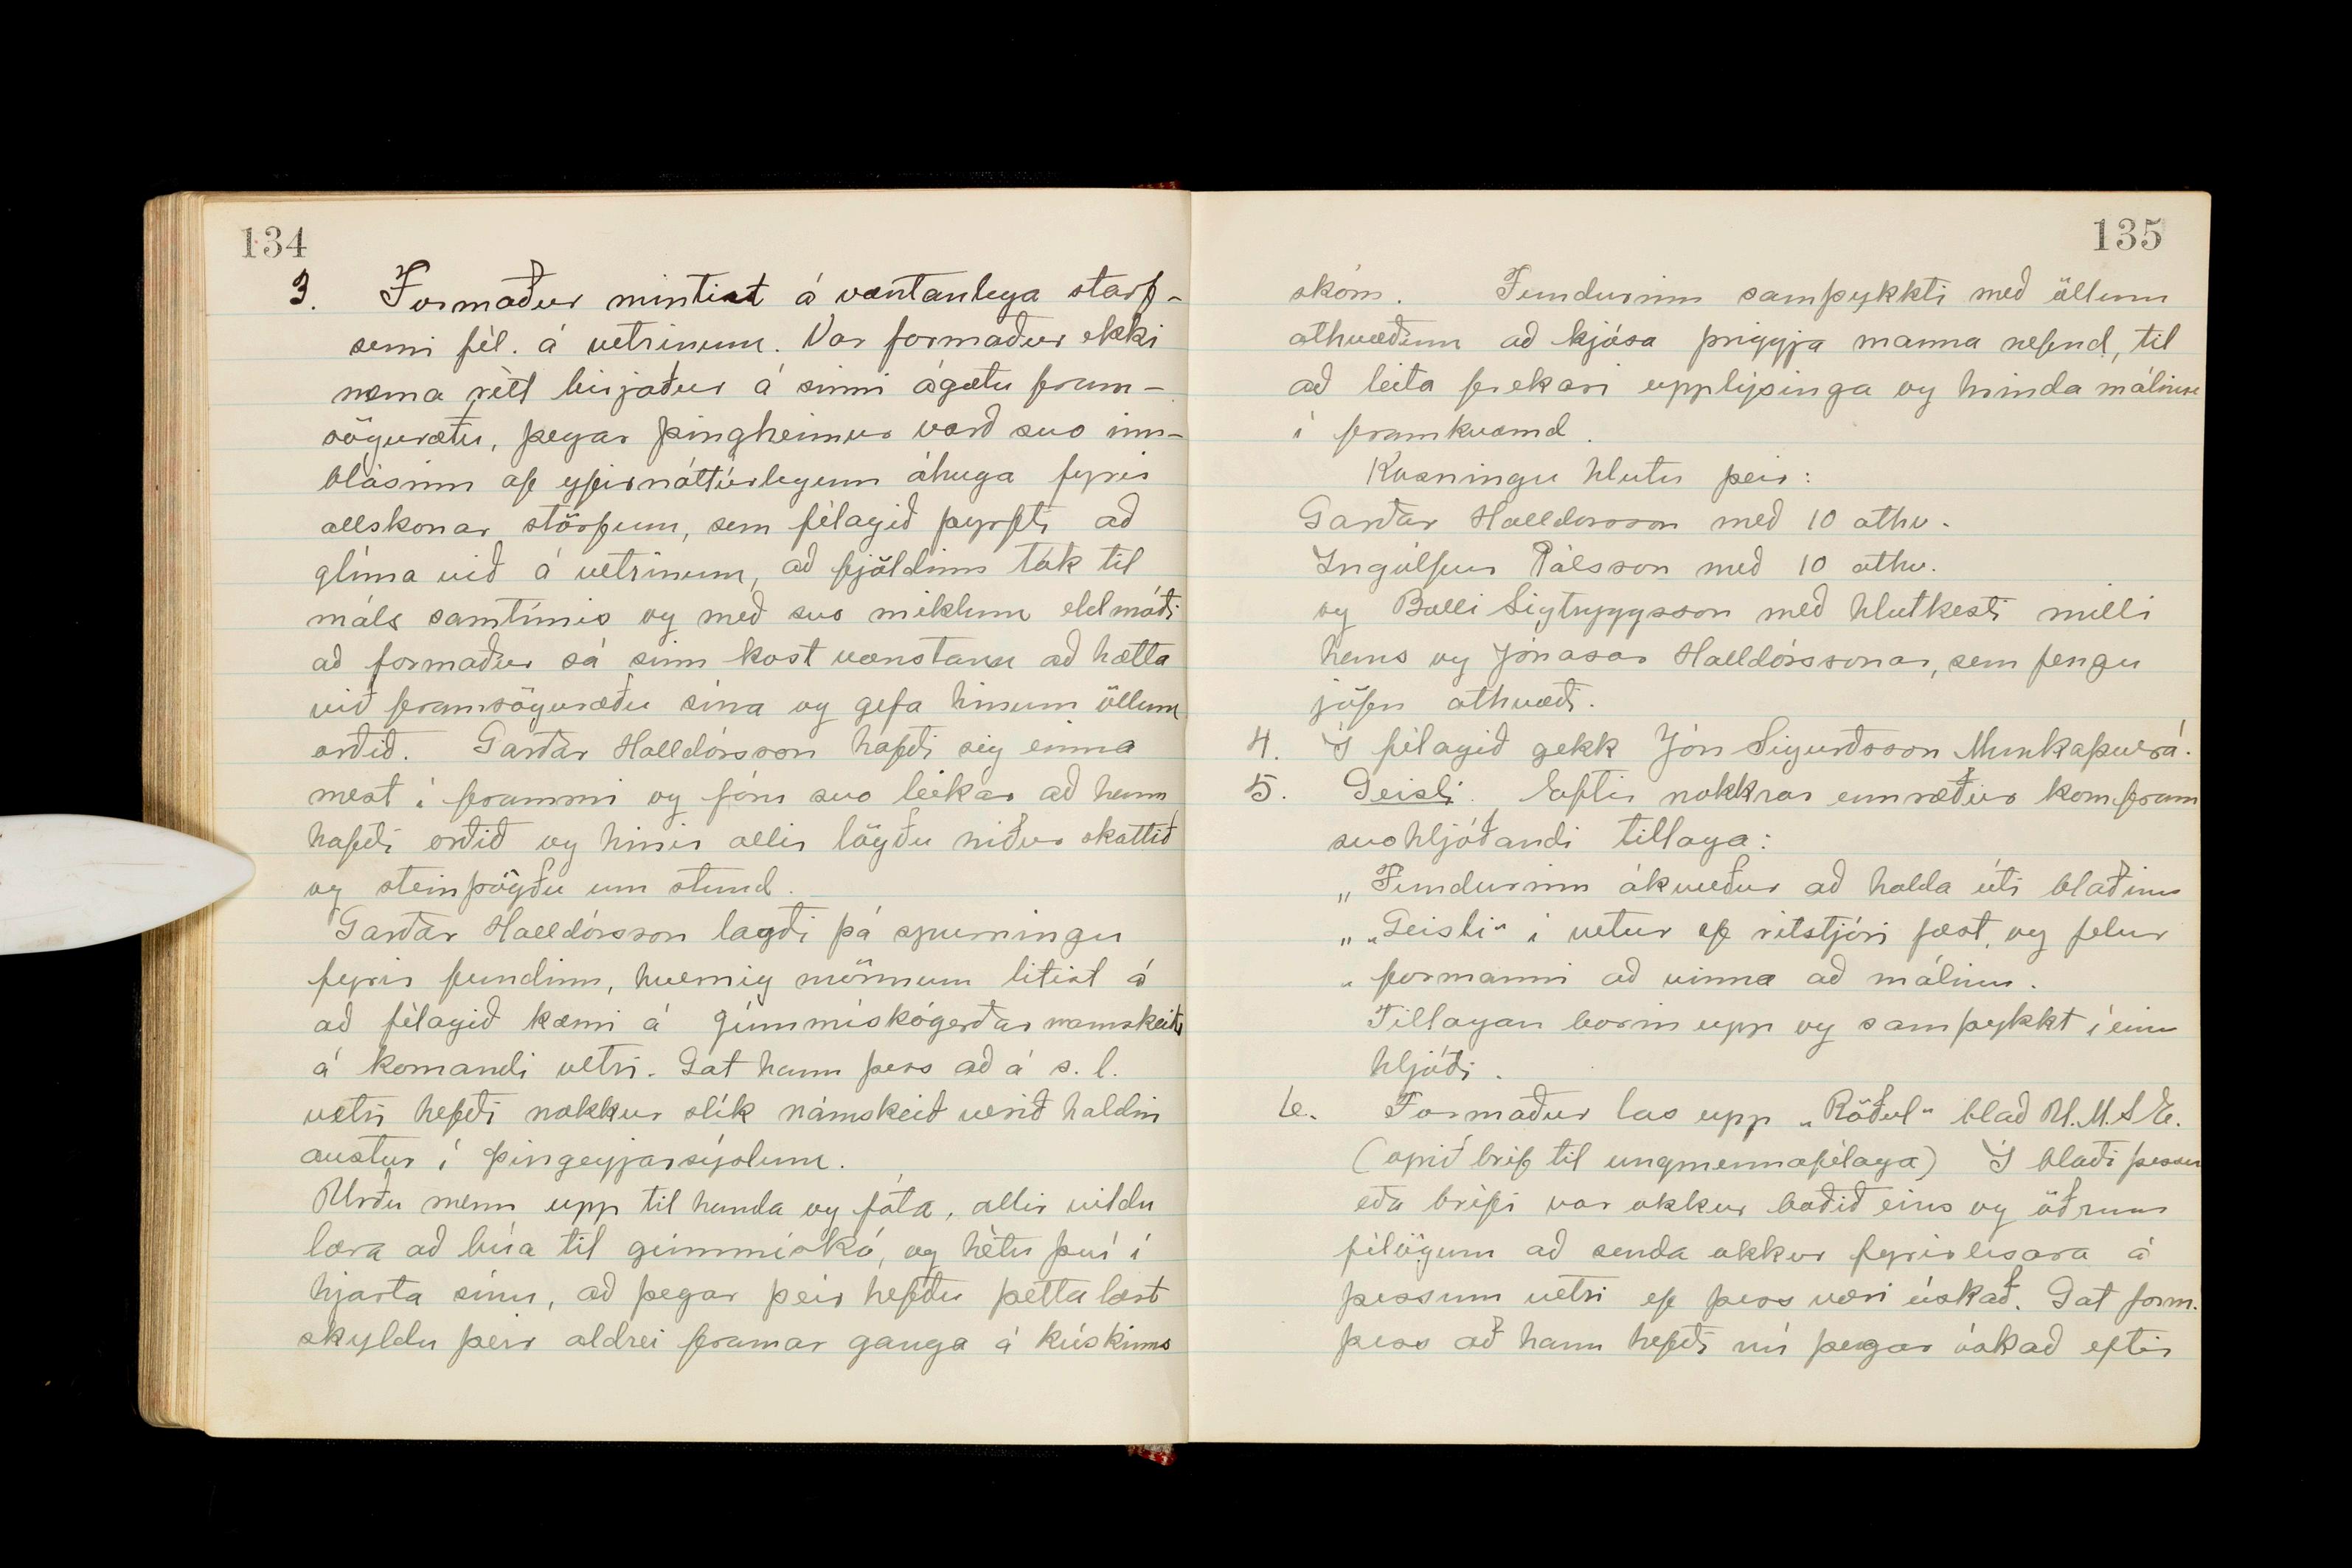 134
3. Formaður mintist á væntanlega starf-
semi fél. á vetrinum. Var formaður ekki
nema rétt birjaður á sinni ágætu fram-
söguræðu, þegar þingheimur varð svo inn-
blásinn af yfirnáttúrlegum áhuga fyrir
allskonar störfum, sem félagið þyrfti að
glíma við á vetrinum, að fjöldinn tók til
máls samtímis og með svo miklum eldmóði
að formaður sá sinn kost vænstann að hætta
við framsöguræðu sína og gefa hinum öllum
orðið. Garðar Halldórsson hafði sig einna
mest í frammi og fóru svo leikar að hann
hafði orðið og hinir allir lögðu niður skottið
og steinþögðu um stund.
Garðar Halldórsson lagði þá spurningu
fyrir fundinn, hvernig mönnum litist á
að félagið kæmi á gúmmískógerðar namskeiði
á komandi vetri. Gat hann þess að á s.l.
vetri hefði nokkur slík námskeið verið haldin
austur í þingeyjarsýslum.
Urðu menn upp til handa og fóta, allir vildu
læra að búa til gúmmískó, og hétu því í
hjarta sínu, að þegar þeir hefðu þetta lært
skyldu þeir aldrei framar ganga á kúskinns
135
skóm. Fundurinn samþykkti með öllum
athvæðum að kjósa þriggja manna nefnd, til
að leita frekari upplýsinga og hrinda málinu
í framkvæmd.
Kosningu hlutu þeir:
Garðar Halldorsson með 10 athv.
Ingólfur Pálsson með 10 athv.
og Balli Sigtryggsson með hlutkesti milli
hans og Jónasar Halldórssonar, sem fengu
jöfn athvæði.
4. Í félagið gekk Jón Sigurðsson Munkaþverá.
5. Geisli. Eftir nokkrar umræður kom fram
svohljóðandi tillaga:
„ Fundurinn ákveður að halda úti blaðinu
„ „Geisli“ í vetur ef ritstjóri fæst, og felur
„ formanni að vinna að málinu.
Tillagan borin upp og samþykkt í einu
hljóði.
6. Formaður las upp „Röðul“ blað U.M.S.E.
(opið bréf til ungmennafélaga) Í blaði þessu
eða bréfi var okkur boðið eins og öðrum
félögum að senda okkur fyrirlesara á
þessum vetri ef þess væri óskað. Gat form.
þess að hann hefði nú þegar óskað eftir